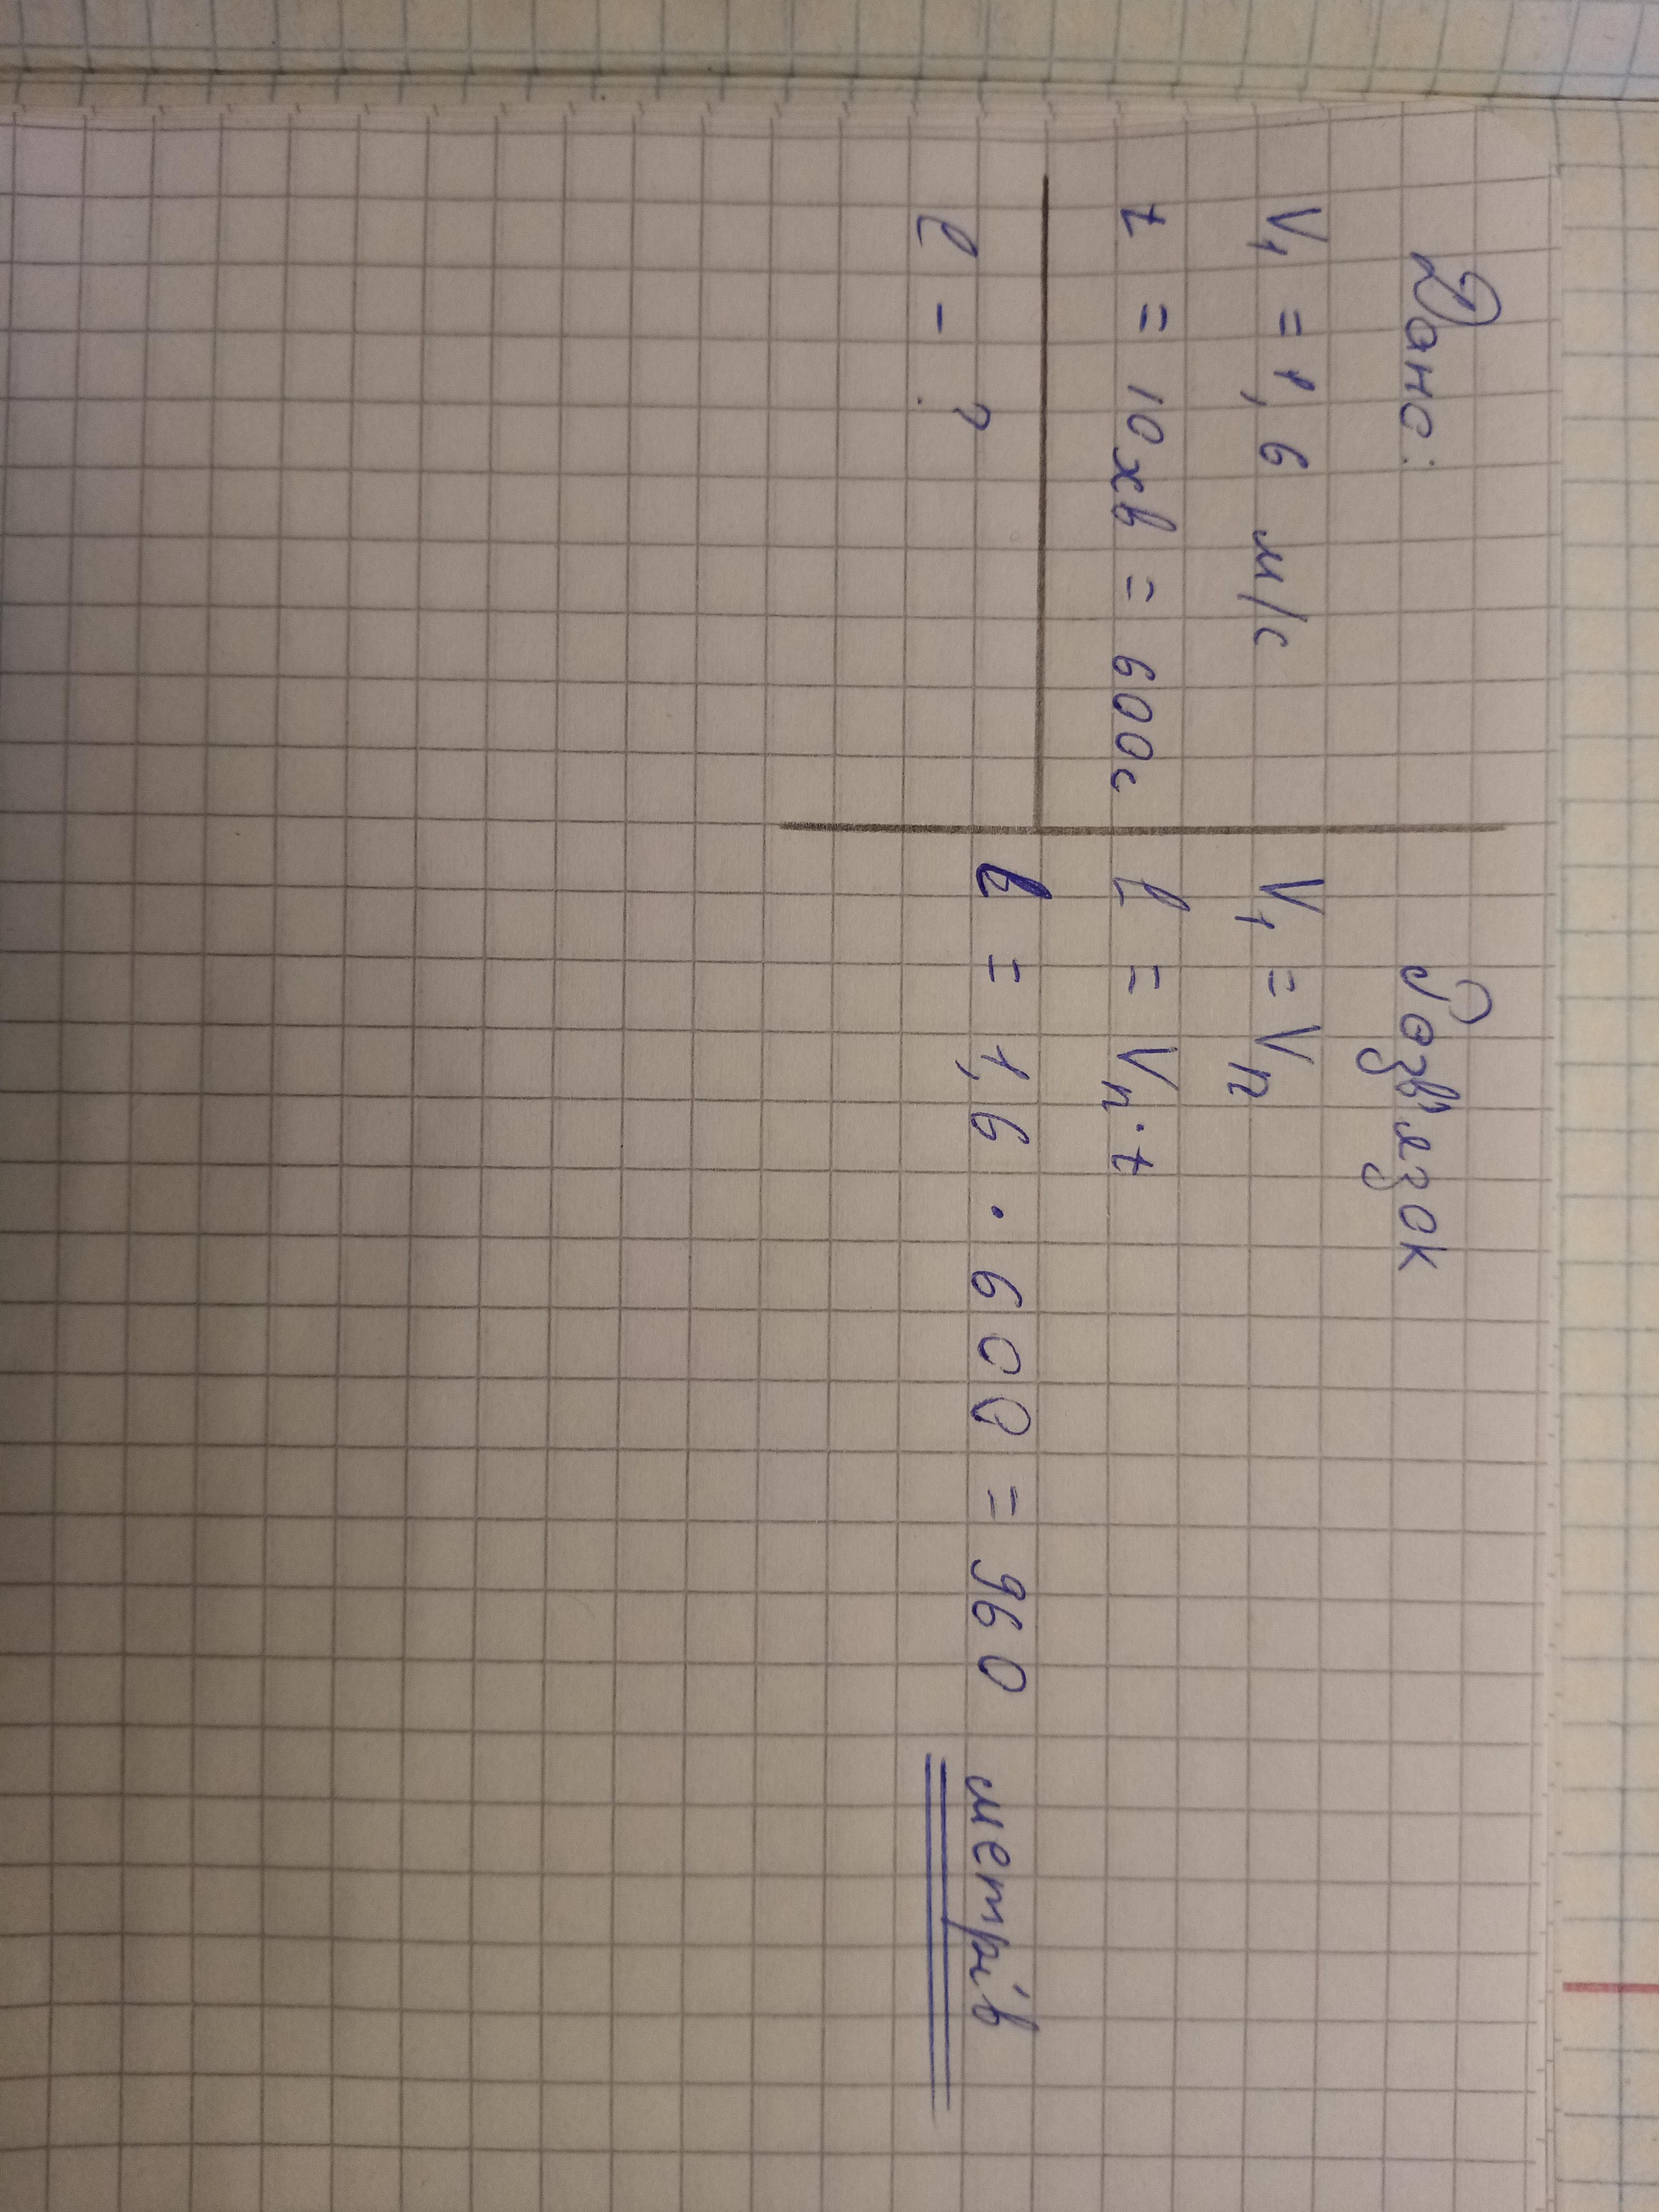 Дано:
V₁ = 1,6 м/с
t = 10хв = 600с
l - ?
Розв'язок
V₁ = Vn
l = Vn · t
l = 1,6 · 600 = 960 метрів